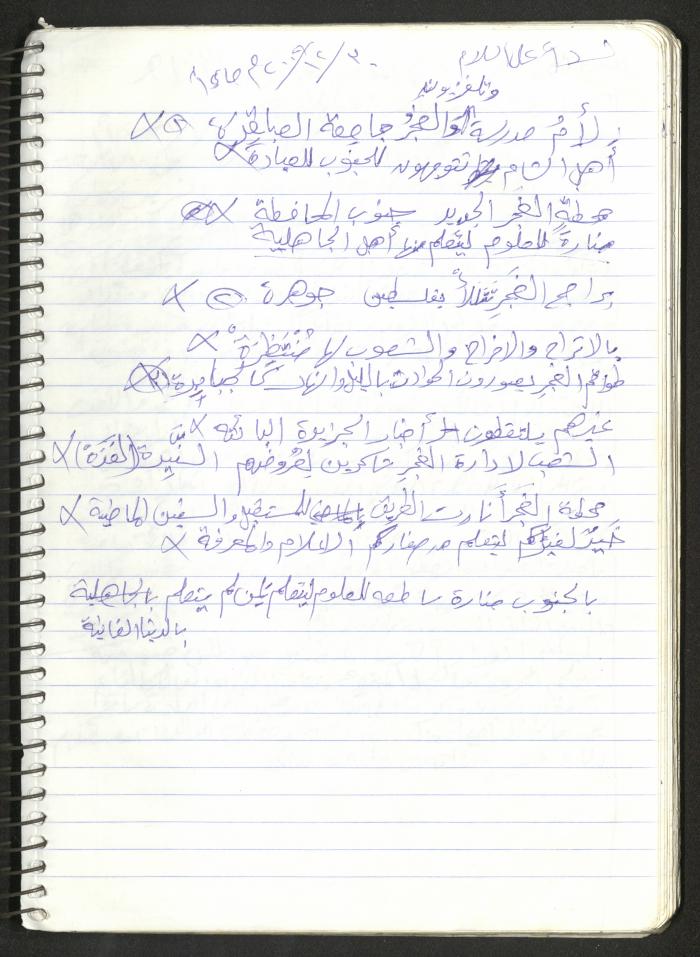 ٣٠/١٢/٢٠٠٥ م
وتلفزيون
الأم مدرسة والفجر جامعة العباقرة
أهل الشام يتوجهون للجنوب للعبادة
محطة الفجر الجديد جنوب المحافظة
منارة للعلوم ليتعلم منها أهل الجاهلية
برامج الفجر تتلألأ بفلسطين جوهرة
بالاتراح والافراح والشعوب لها منتظرة
طواقم الفجر يصورون الحوادث بالليل والنهار
غيرهم يلتقطون أخبار الجريدة البائته
الشعب لادارة الفجر شاكرين لعروضهم النيرة (الفذة)
محطة الفجر أنارت الطريق للمستقبل والسنين الماضية
ليتعلم صغاركم الاعلام والمعرفة
بالجنوب منارة ساطعه للعلوم ليتعلم من لم يتعلم بالجاهلية
بالدنيا الفانية